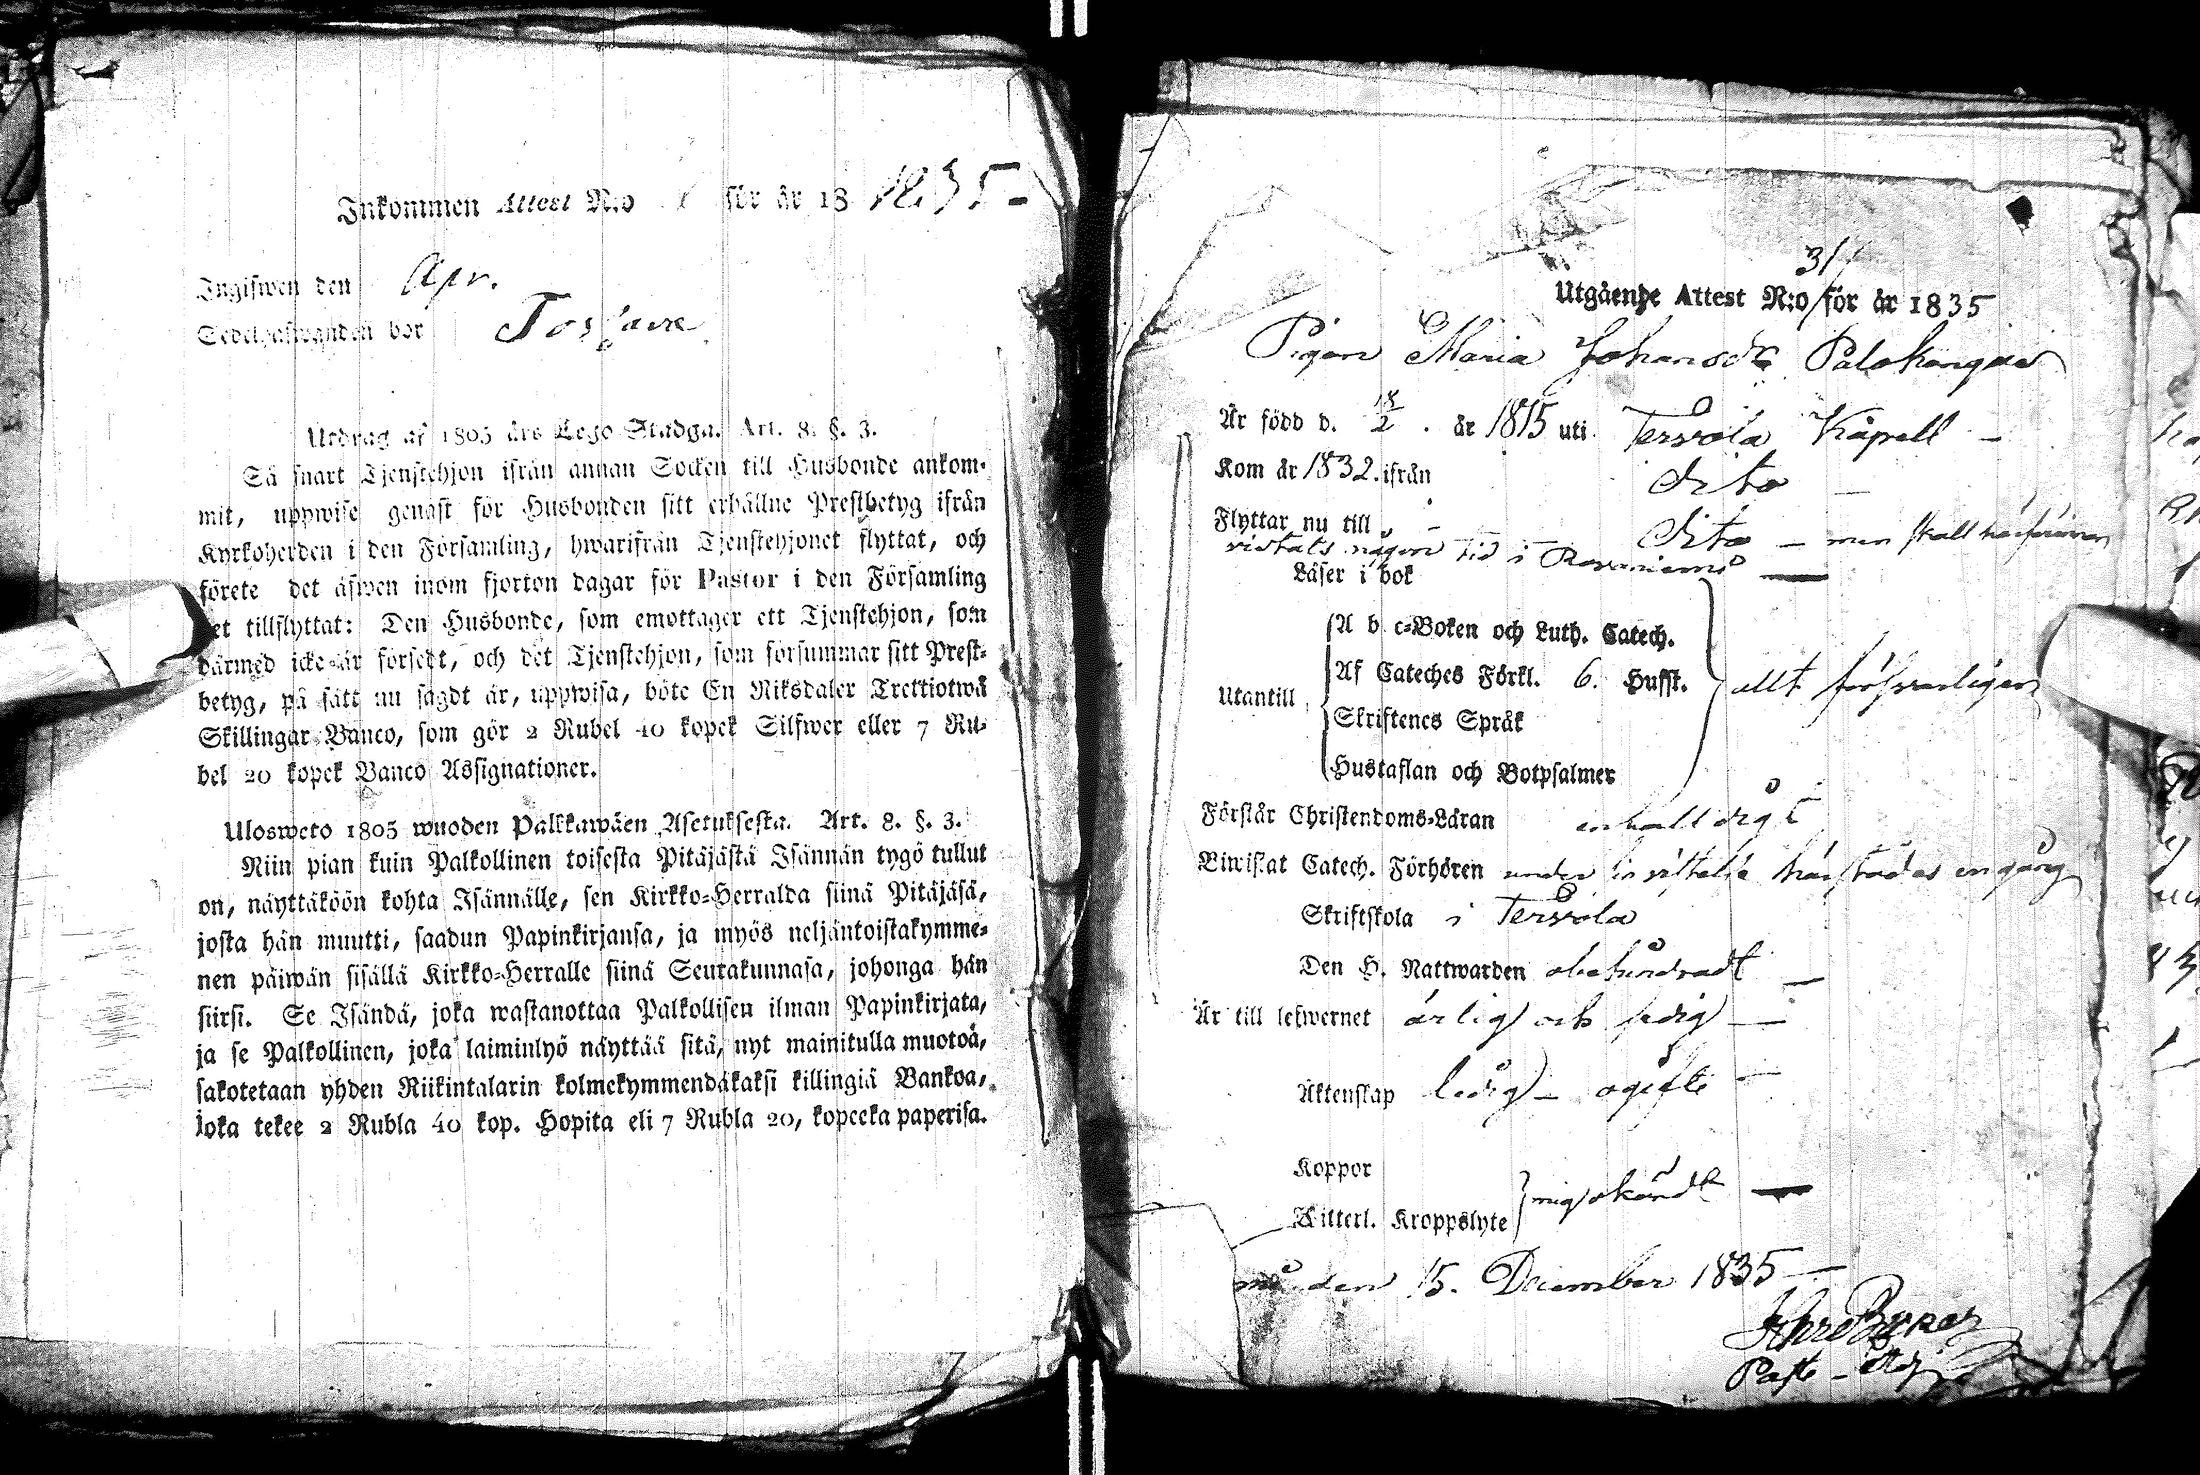 Inkommen Attest N:o för år 18 1835-
Ingifwen den Apr.
Sedelhafwanden bor
Utdrag af 1805 års Lego-Stadga. Art. 8. §. 3.
Så snart Tjenstehjon ifrån annan Socken till Husbonde ankom-
mit, uppwise genast för Husbonden sitt erhållne Prestbetyg ifrån
Kyrkoherden i den Församling, hwarifrån Tjenstehjonet flyttat, och
förete det äfwen inom fjorton dagar för Pastor i den Församling
det tillflyttat: Den Husbonde, som emottager ett Tjenstehjon, som
därmed icke är försedt, och det Tjenstehjon, som försummar sitt Prest-
betyg, på sätt nu sagdt är, uppwisa, böte En Riksdaler Trettiotwå
Skillingar Banco, som gör 2 Rubel 40 kopek Silfwer eller 7 Ru-
bel 20 kopek Banco Assignationer.
Ulosweto 1805 wuoden Palkkawäen Asetuksesta. Art. 8. §. 3.
Niin pian kuin Palkollinen toisesta Pitäjästä Isännän tygö tullut
on, näyttäköön kohta Isännälle, sen Kirkko-Herralda siinä Pitäjäsä,
josta hän muutti, saadun Papinkirjansa, ja myös neljäntoistakymme-
nen päiwän sisällä Kirkko-Herralle siinä Seurakunnasa, johonga hän
siirsi. Se Isändä, joka wastanottaa Palkollisen ilman Papinkirjata,
ja se Palkollinen, joka laiminlyö näyttää sitä, nyt mainitulla muotoa,
sakotetaan yhden Riikintalarin kolmekymmendäkaksi killingiä Bankoa,
joka tekee 2 Rubla 40 kop. Hopita eli 7 Rubla 20, kopeeka paperisa.
31
Utgående Attest N:o för år 1835
Pigan Maria Johansdr Palokangas
Är född d. 18/2 . år 1815 uti Tervola Kapell -
Kom år 1832. ifrån dito -
Flyttar nu till dito - men skall härförinnan
vistats någon tid i Rovaniemi -
Läser i bok
Utantill
A b c-Boken och Luth. Catech.
Af Cateches Förkl. 6. Hufst.
Skriftenes Språk
Hustaflan och Botpsalmer
allt försvarligen
Förstår Christendoms-Läran enfalldigt
Biwistat Catech. Förhören under sin vistelse härstädes en gång
Skriftskola i Tervola
Den H. Nattwarden obehindradt -
Är till lefwernet ärlig och sedig -
Äktenskap ledig - ogift -
Koppor
Witterl. Kroppslyte
mig okändt -
den 15. December 1835 -